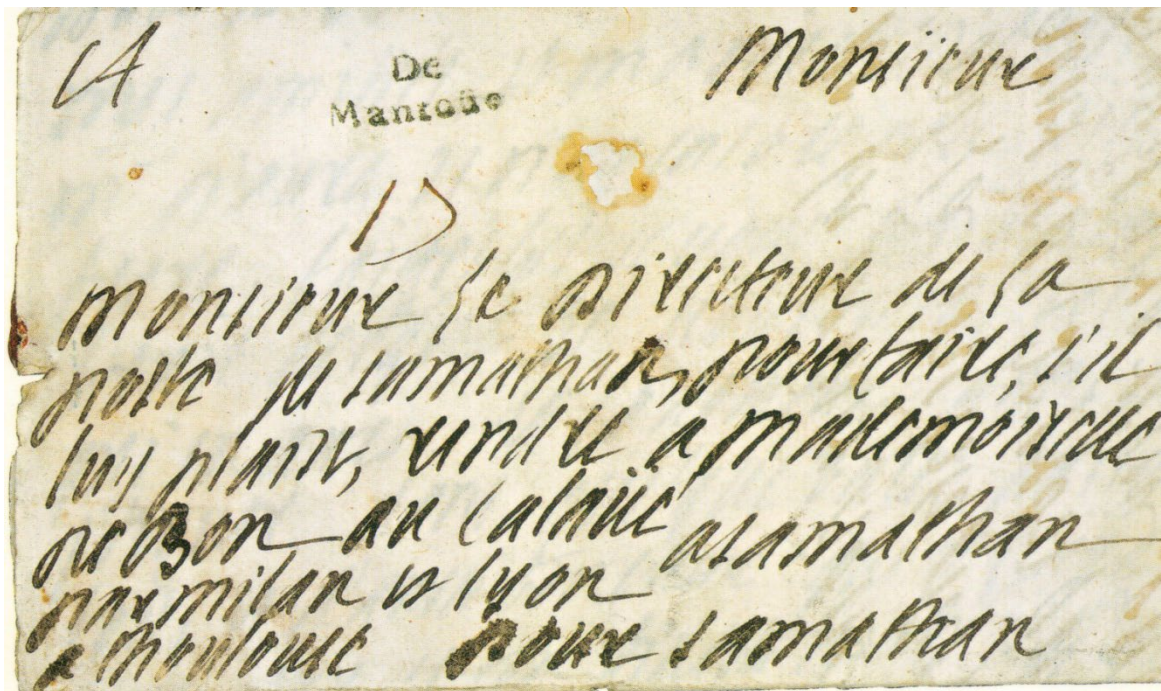 De
Mantoüe
Monsieur
Monsieur le Directeur de la
poste de samathan, pour faire, s'il
luy plaist, rendre a mademoiselle
au
a samathan
par milan et lyon
a thoulouse pour samathan